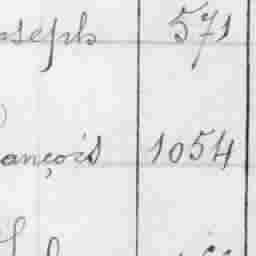 oseph 571
ançois 1054